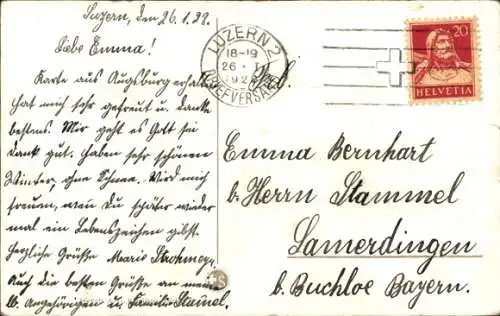 Luzern, den 26.1.22.
Liebe Emma!
Karte aus Augsburg erhalt.
hat mich sehr gefreut u. danke
bestens. Mir geht es Gott sei
Dank gut. haben sehr schönen
Winter, ohne Schnee. Wird mich
freuen, wenn Du später wieder
mal ein Lebenszeichen gibst.
Herzliche Grüße Marie
Auch die besten Grüße an meine
lb. Angehörigen u. Familie Stammel.
LUZERN 2
18-19
26. I.
BRIEFVERSAND
20
HELVETIA
Emma Bernhart
b. Herrn Stammel
Lamerdingen
b. Buchloe Bayern.